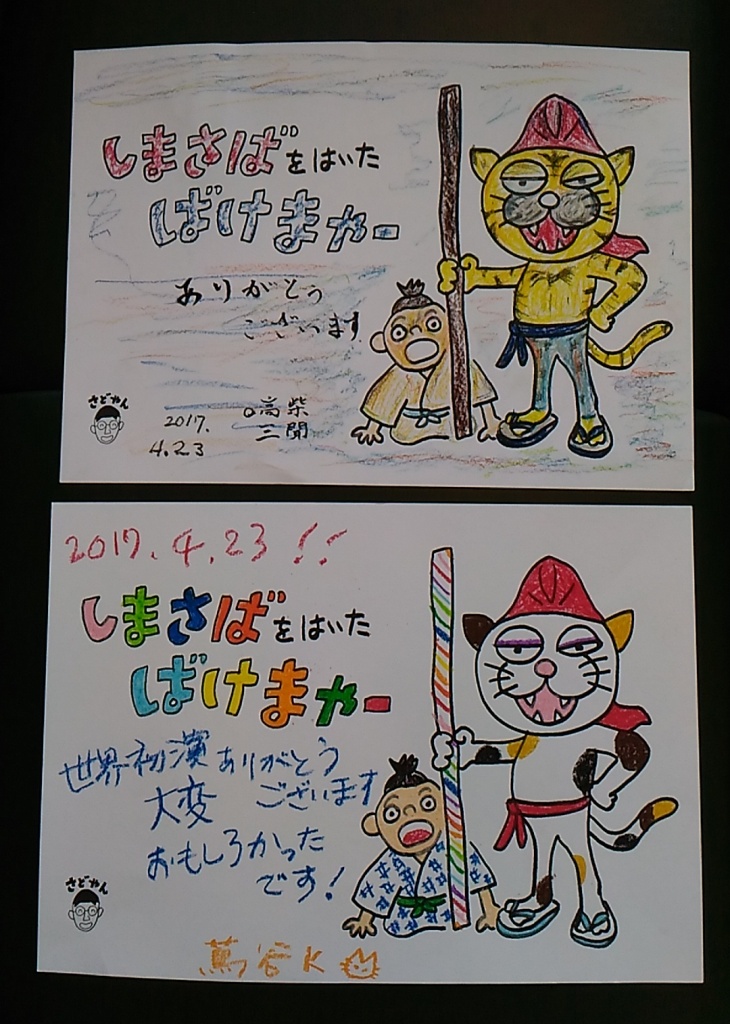 しまさばをはいた
ばけまやー
ありがとう
ございます
さどやん
2017.
4.23
高柴
三聞
2017.4.23!!
しまさばをはいた
ばけまやー
世界初演ありがとう
ございます
大変
おもしろかった
です!
さどやん
蔦谷K